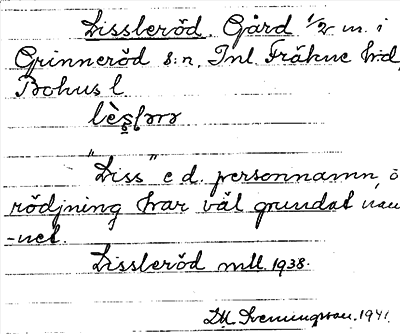 Lissleröd. Gård 1/2 m. i
Grinneröd s:n, Inl. Fräkne h:d,
Bohus l.
"Liss" e d. personnamn, o
rödjning har väl grundat nam
-net.
Lissleröd mtl. 1938.
DM Svenungsson. 1941.